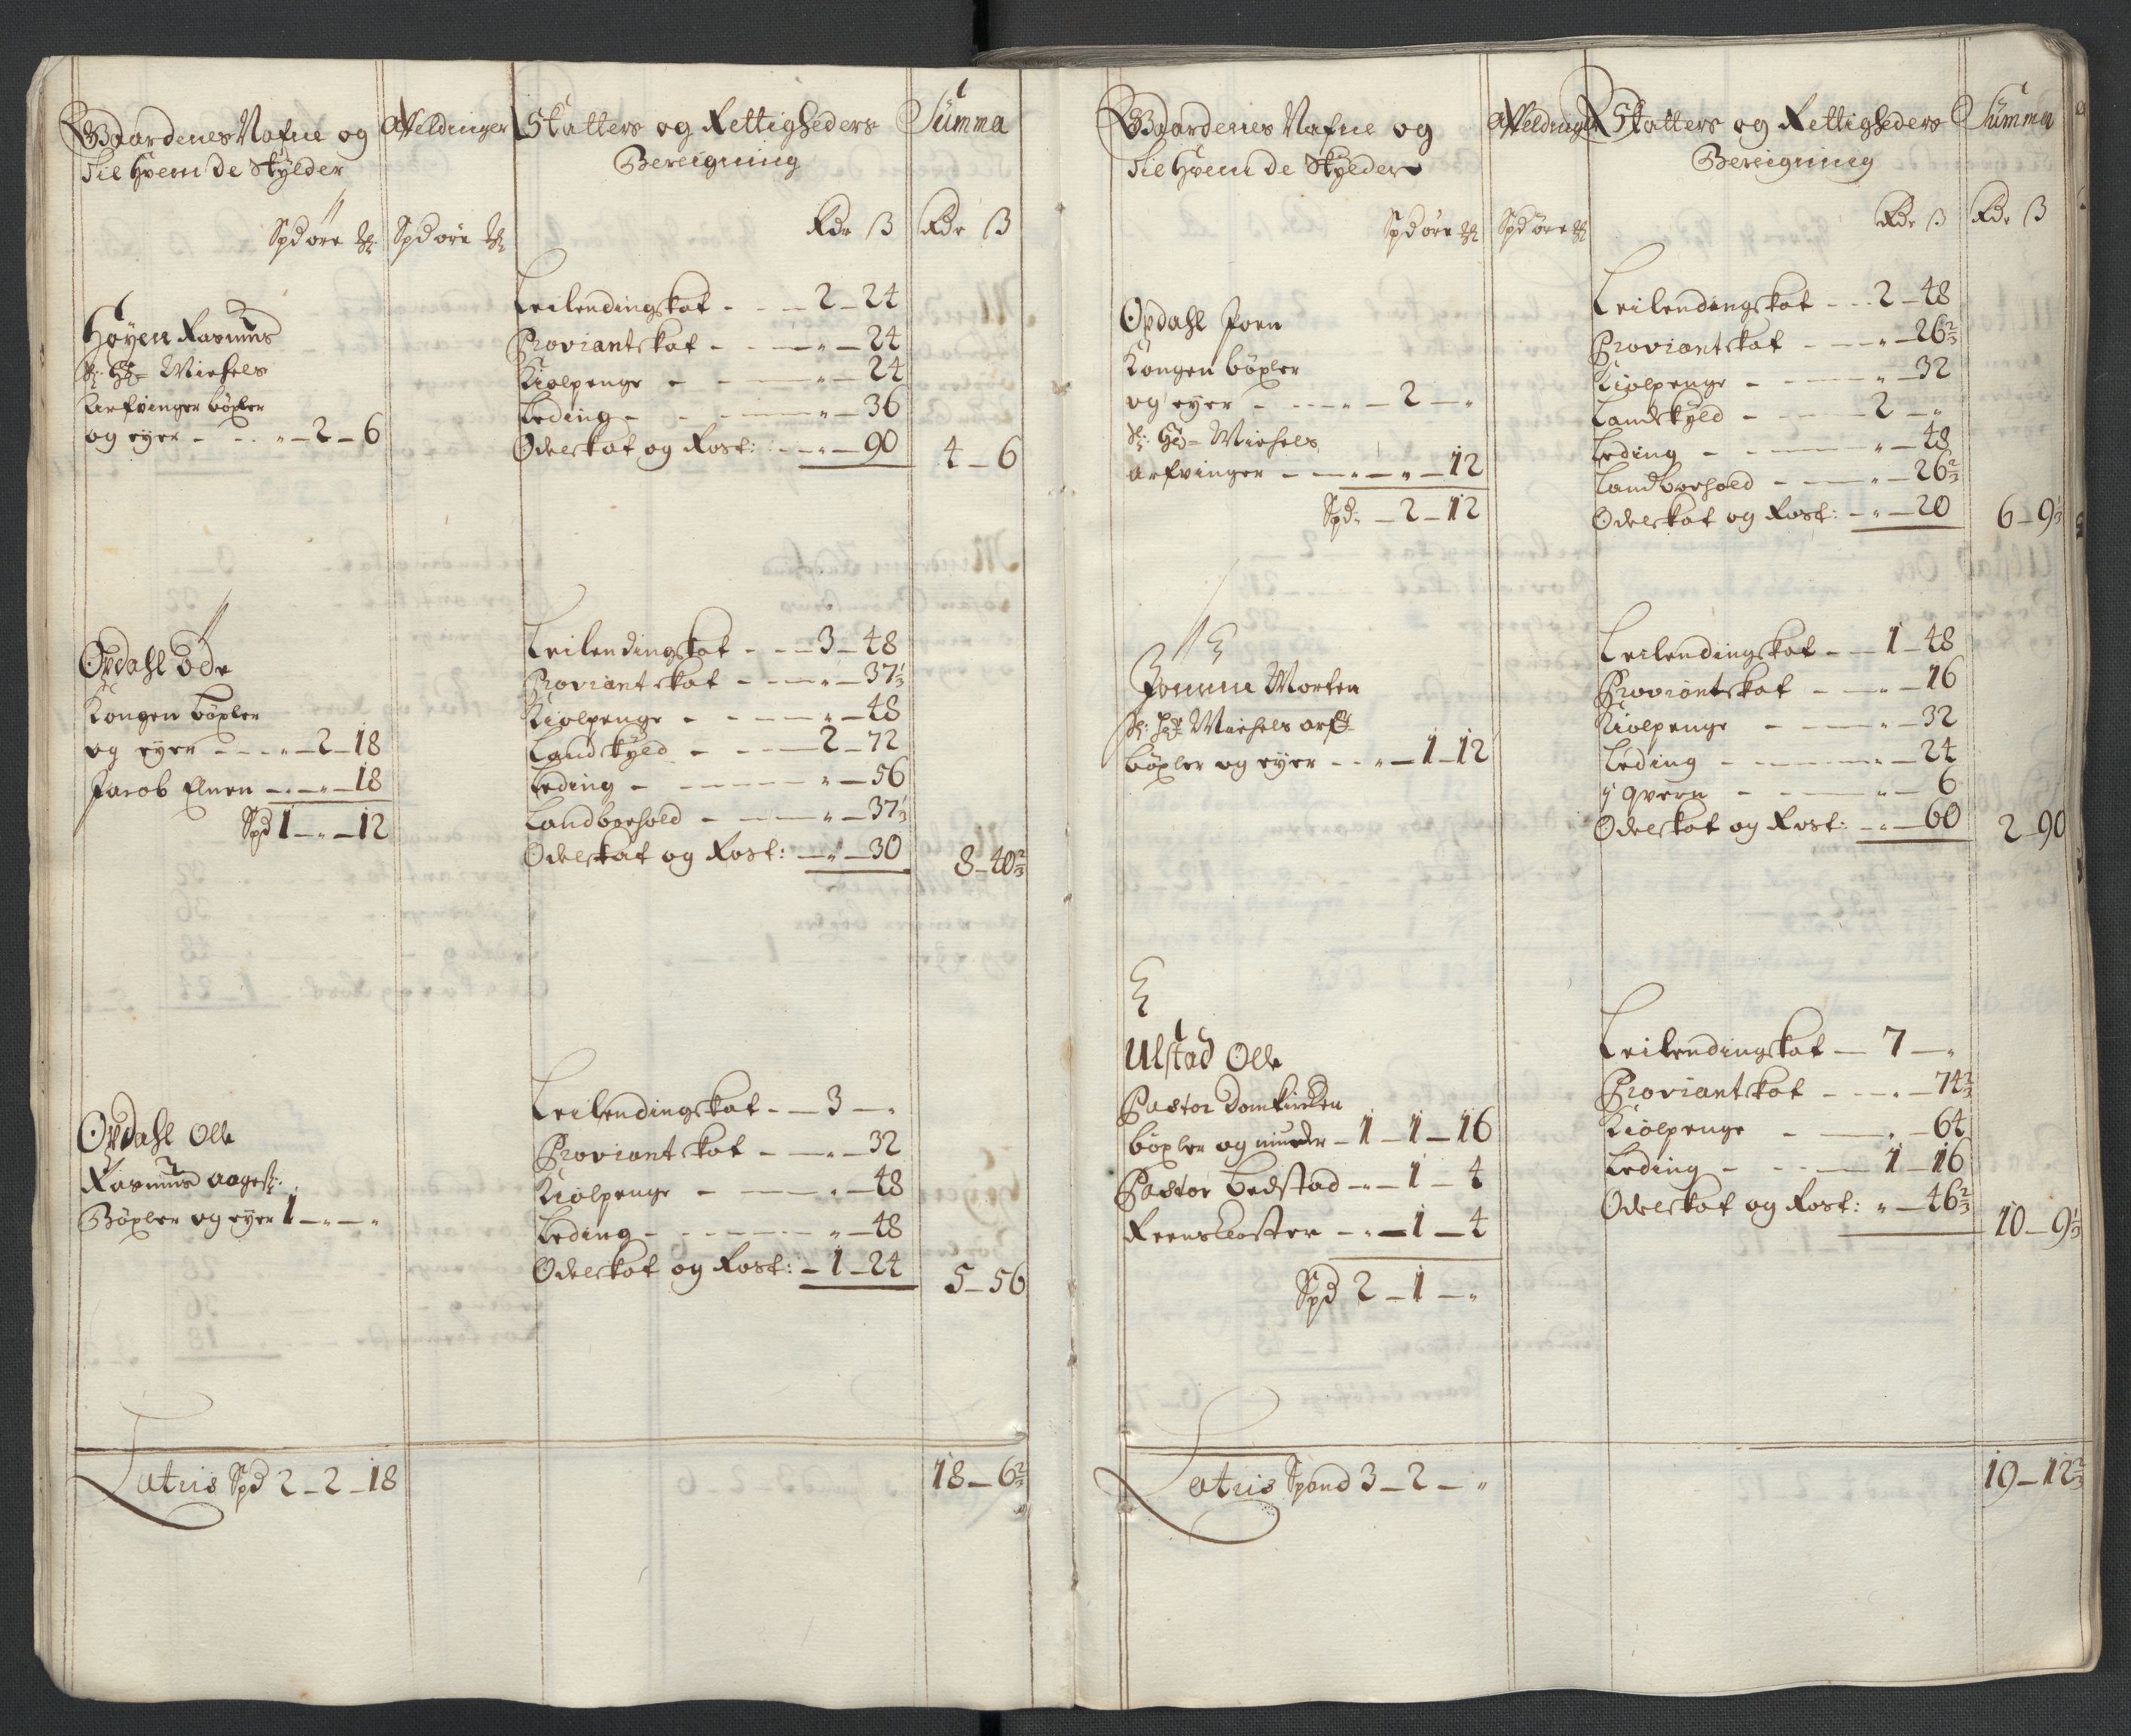 Gaardenes Nafne og
Til Hvem de Skylder
Afeldinger
Skatters og Rettigheders
Bereigning
Summa
Spd øre
Spd øre
Rdr ß
Rdr ß
Høyen Rasmus
Sl: Hr= Michels
Arfvinger böxler
og eyer - - „ - 2 - 6
Leilendingskat - - - 2 - 24
Proviantskat - - - „ - 24
Kiølpenge - - - „ - 24
Leding - - - „ - 36
Odelskat og Rost: - „ - 90
4 - 6
Opdahl Ode
Kongen böxler
og eyer - - „ - 2 - 18
Jacob Elnen - - „ - 18
Spd 1 - „ - 12
Leilendingskat - - - 3 - 48
Proviantskat - - - „ - 37⅓
Kiølpenge - - - „ - 48
Landskyld - - - 2 - 72
Leding - - - „ - 56
Landborhold - - - „ - 37⅓
Odelskat og Rost: - „ - 30
8 - 40⅔
Opdahl Olle
Rasmus Aagess:
Böxler og eyer 1 - „ - „
Leilendingskat - - 3 - „
Proviantskat - - „ - 32
Kiølpenge - - „ - 48
Leding - - - „ - 48
Odelskat og Rost: - 1 - 24
5 - 56
Latris Spd 2 - 2 - 18
18 - 6⅔
Gaardenes Nafne og
Til Hvem de Skylder
Afeldinger
Skatters og Rettigheders
Bereigning
Summa
Spd øre
Spd øre
Rdr ß
Rdr ß
Opdahl Joen
Kongen böxler
og eyer - - - „ - 2 - „
Sl: Hr= Michels
arfvinger - - „ - „ - 12
Spd: - 2 - 12
Leilendingskat - - 2 - 48
Proviantskat - - „ - 26⅔
Kiølpenge - - - „ - 32
Landskyld - - - 2 - „
Leding - - - „ - 48
Landborhold - - - „ - 26⅔
Odelskat og Rost: - „ - 20
6 - 9⅓
Morten
Sl: Hr Michels arf
böxler og eyer - - „ - 1 - 12
Leilendingskat - - 1 - 48
Proviantskat - - „ - 16
Kiølpenge - - - „ - 32
Leding - - - „ - 24
qvern - - - „ - 6
Odelskat og Rost: - „ - 60
2 - 90
Ulstad Olle
Pastor Domkircken
böxler og - 1 - 1 - 16
Pastor Bedstad - „ - 1 - 4
Reenskloster - „ - 1 - 4
Spd 2 - 1 - „
Leilendingskat - 7 - „
Proviantskat - - „ - 74⅔
Kiølpenge - - „ - 64
Leding - - - 1 - 16
Odelskat og Rost: „ - 46⅔
10 - 9⅓
Latris Spand 3 - 2 - „
19 - 12⅔